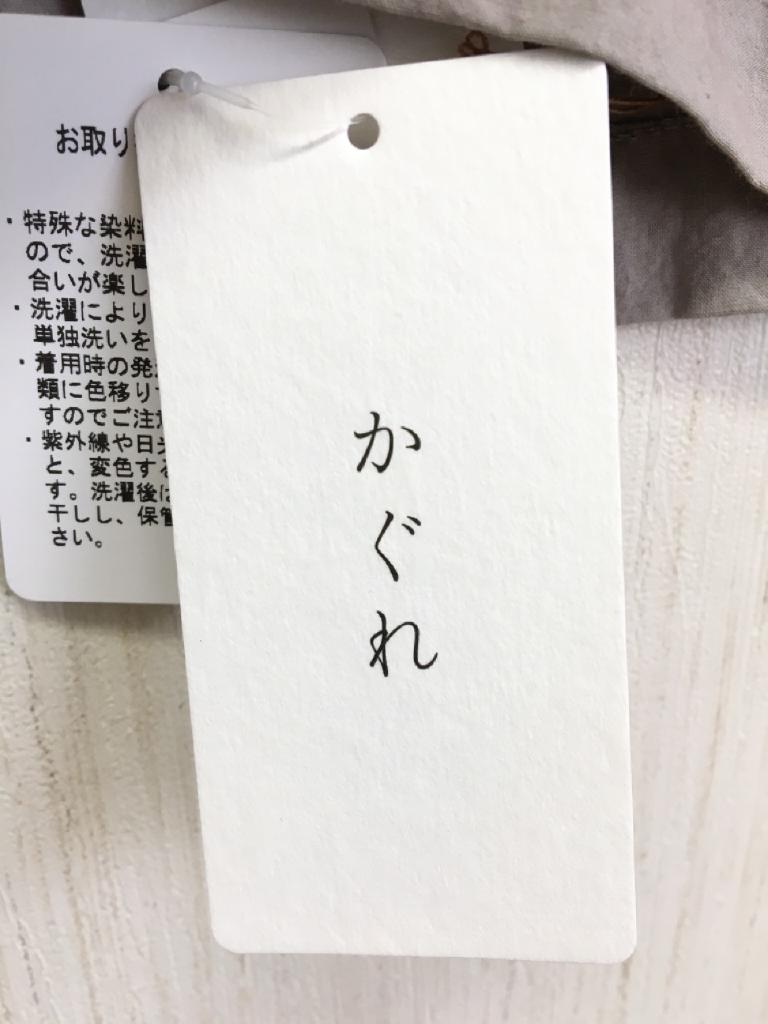 お取り
・特殊な染料
ので、洗濯
合いが楽し
・洗濯により
単独洗いを
・着用時の発
類に色移り
すのでご注意
・紫外線や日光
と、変色する
す。洗濯後は
干しし、保管
さい。
かぐれ